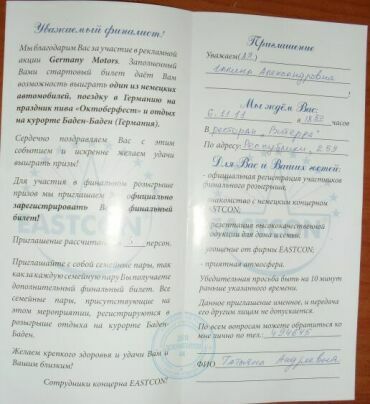 Уважаемый финалист!
Мы благодарим Вас за участие в рекламной
акции Germany Motors. Заполненный
Вами стартовый билет даёт Вам
возможность выиграть один из немецких
автомобилей, поездку в Германию на
праздник пива «Октоберфест» и отдых
на курорте Баден-Баден (Германия).
Сердечно поздравляем Вас с этим
событием и искренне желаем удачи
выиграть призы!
Для участия в финальном розыгрыше
призов мы приглашаем официально
зарегистрировать Ваш финальный
билет!
Приглашение рассчитано персон.
Приглашайте с собой семейные пары, так
как за каждую семейную пару Вы получаете
дополнительный финальный билет. Все
семейные пары, присутствующие на
этом мероприятии, регистрируются в
розыгрыше отдыха на курорте Баден-
Баден.
Желаем крепкого здоровья и удачи Вам и
Вашим близким!
Сотрудники концерна EASTCON!
Приглашение
Уважаем(ая)
Александровна
Мы ждём Вас:
6.11.11 в 18 часов
В ресторан
По адресу: Республики, 259
Для Вас и Ваших гостей:
- официальная регистрация участников
финального розыгрыша,
знакомство с немецким концерном
STCON;
презентация высококачественной
продукции для дома и семьи
угощение от фирмы EASTCON;
- приятная атмосфера.
Убедительная просьба быть на 10 минут
раньше указанного времени.
Данное приглашение именное, и передача
его другим лицам не допускается.
По всем вопросам можете обратиться ко
мне лично по тел.: 494645
ФИО Татьяна Андреевна
EASTCON